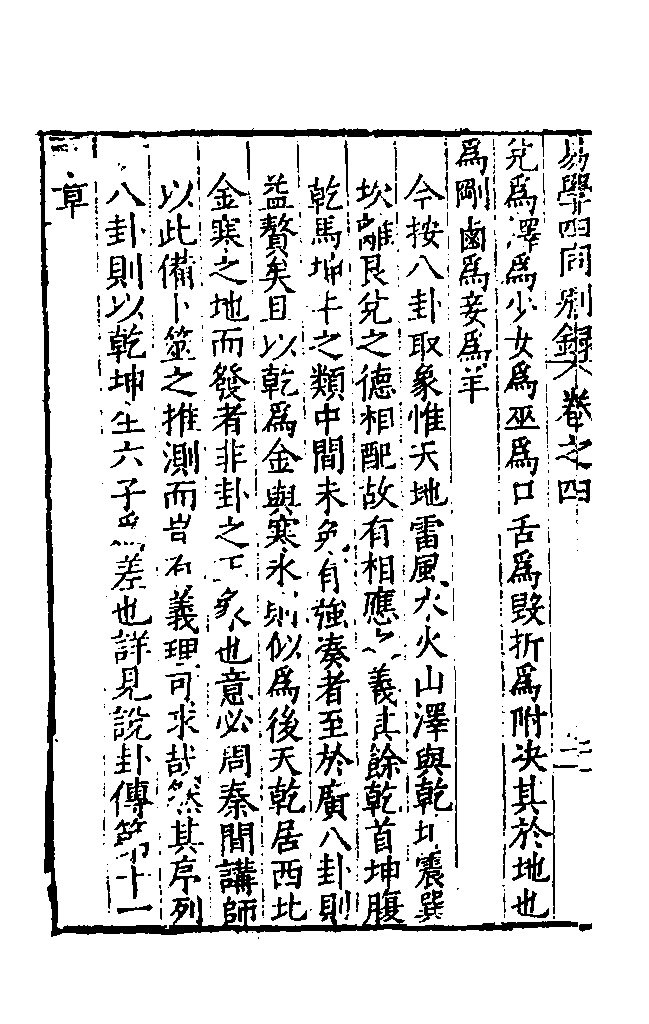 易學四同別錄卷之四
兌爲澤爲少女爲巫爲口舌爲毀折爲附决其於地也
爲剛鹵爲妾爲羊
今按八卦取象惟天地雷風水火山澤與乾坤震巽
坎離艮兌之德相配故有相應之義其餘乾首坤腹
乾馬坤牛之類中間未免有強湊者至於廣八卦則
益贅矣且以乾爲金與寒氷則似爲後天乾居西北
金寒之地而發者非卦之正象也意必周秦間講師
以此備卜筮之推測而豈有義理可求哉然其序列
八卦則以乾坤生六子爲差也詳見說卦傳第十一
章